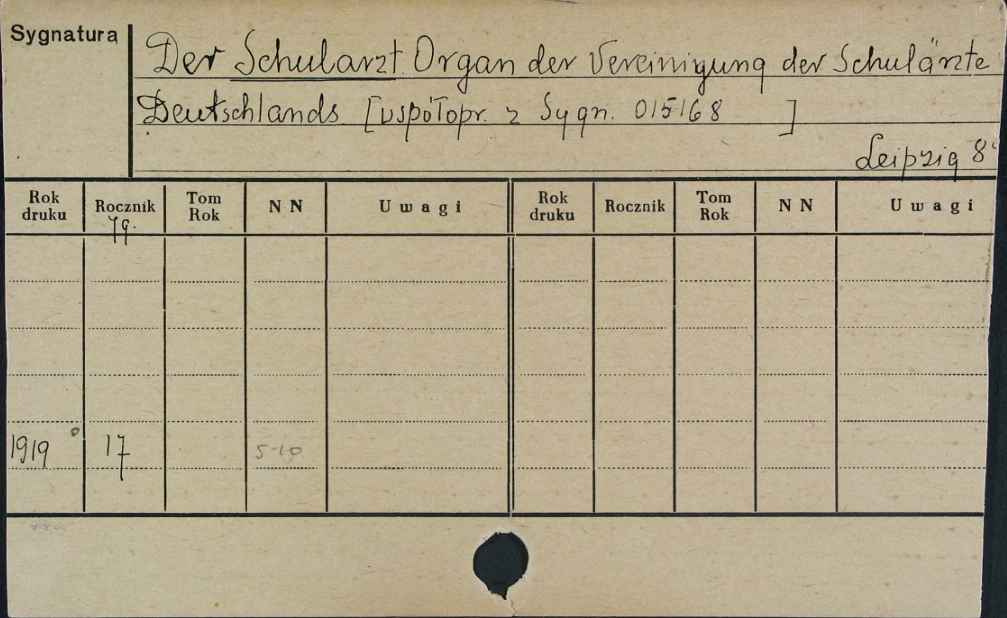 Sygnatura
Der Schularzt Organ der Vereinigung der Schulärzte
Deutschlands [współopr. z Sygn. 015168 ]
Leipzig 8°
Rok druku Rocznik Tom Rok N N Uwagi Rok druku Rocznik Tom Rok N N Uwagi
Jg.
1919 17 5-10